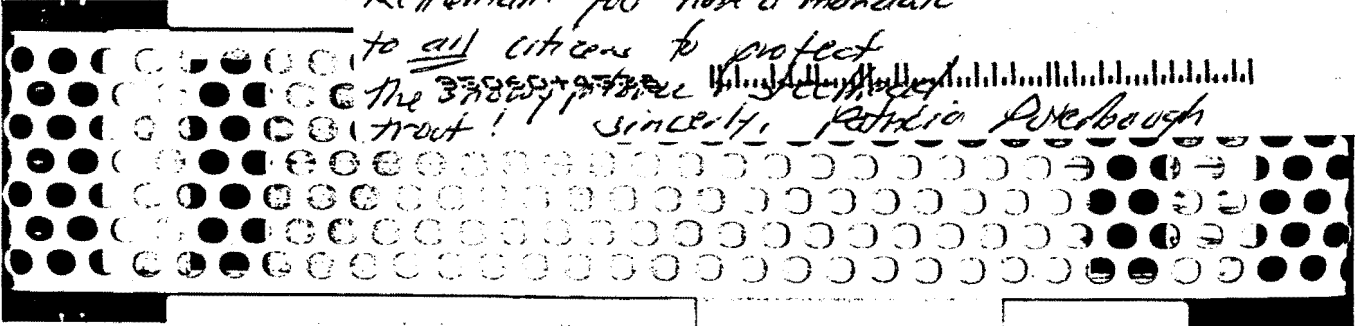 Remember you have a mandate
to all citizens to protect
the snowy plover & steelhead
trout! Sincerly, Patricia Overbaugh